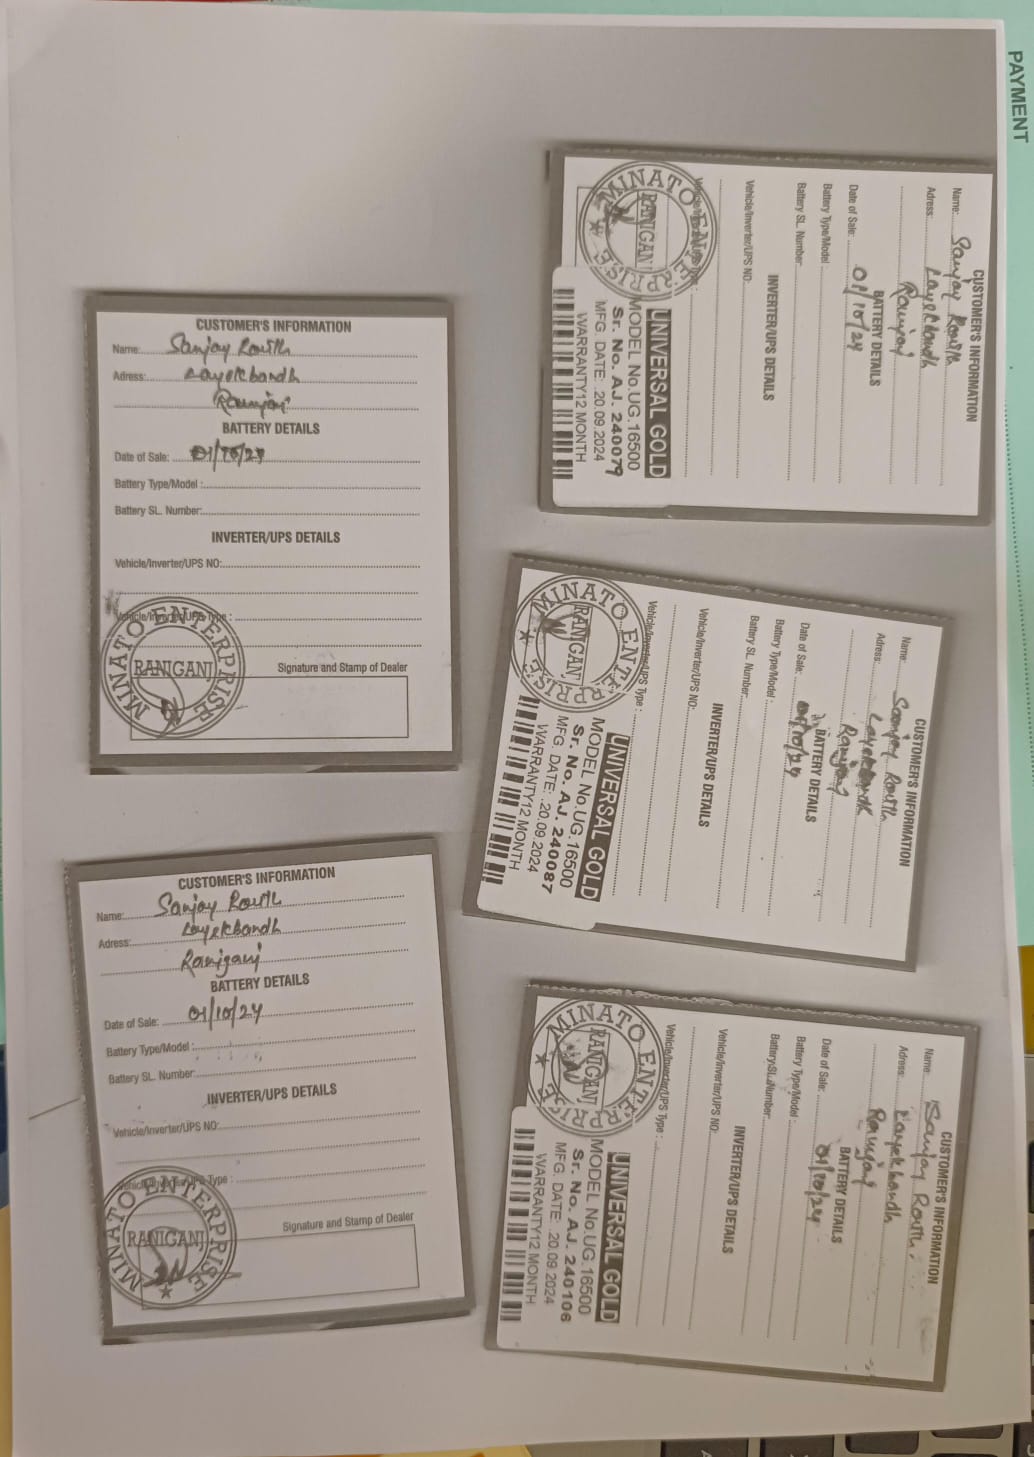 PAYMENT
CUSTOMER'S INFORMATION
Name: Sanjay Routh
Adress: Layekbandh
Raniganj
BATTERY DETAILS
Date of Sale: 01/10/24
Battery Type/Model :
Battery SL. Number:
INVERTER/UPS DETAILS
Vehicle/Inverter/UPS NO:
Vehicle/Inverter/UPS Type :
Signature and Stamp of Dealer
MINATO ENTERPRISE
RANIGANJ
CUSTOMER'S INFORMATION
Name: Sanjay Routh
Adress: Layekbandh
Raniganj
BATTERY DETAILS
Date of Sale: 01/10/24
Battery Type/Model :
Battery SL. Number:
INVERTER/UPS DETAILS
Vehicle/Inverter/UPS NO:
Vehicle/Inverter/UPS Type :
Signature and Stamp of Dealer
MINATO ENTERPRISE
RANIGANJ
CUSTOMER'S INFORMATION
Name: Sanjay Routh
Adress: Layekbandh
Raniganj
BATTERY DETAILS
Date of Sale: 01/10/24
Battery Type/Model :
Battery SL. Number:
INVERTER/UPS DETAILS
Vehicle/Inverter/UPS NO:
Vehicle/Inverter/UPS Type :
MINATO ENTERPRISE
RANIGANJ
UNIVERSAL GOLD
MODEL No.UG.16500
Sr. No. AJ. 240079
MFG. DATE: .20.09.2024
WARRANTY12 MONTH
CUSTOMER'S INFORMATION
Name: Sanjay Routh
Adress: Layekbandh
Raniganj
BATTERY DETAILS
Date of Sale: 01/10/24
Battery Type/Model :
Battery SL. Number:
INVERTER/UPS DETAILS
Vehicle/Inverter/UPS NO:
Vehicle/Inverter/UPS Type :
MINATO ENTERPRISE
RANIGANJ
UNIVERSAL GOLD
MODEL No.UG.16500
Sr. No. AJ. 240087
MFG. DATE: .20.09.2024
WARRANTY12 MONTH
CUSTOMER'S INFORMATION
Name: Sanjay Routh
Adress: Layekbandh
Raniganj
BATTERY DETAILS
Date of Sale: 01/10/24
Battery Type/Model :
Battery SL. Number:
INVERTER/UPS DETAILS
Vehicle/Inverter/UPS NO:
Vehicle/Inverter/UPS Type :
MINATO ENTERPRISE
RANIGANJ
UNIVERSAL GOLD
MODEL No.UG.16500
Sr. No. AJ. 240106
MFG. DATE: .20.09.2024
WARRANTY12 MONTH